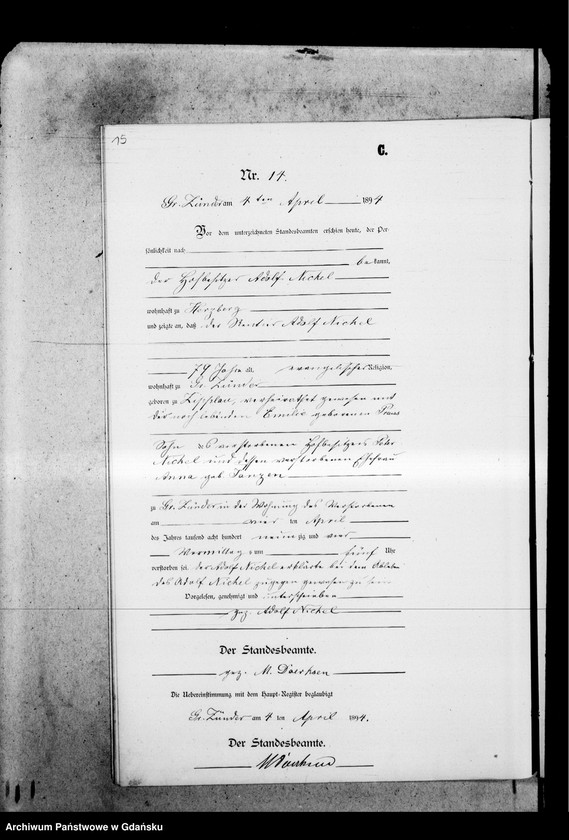 15
C.
Nr. 14.
Gr. Zünder am 4 ten April 1894
Vor dem unterzeichneten Standesbeamten erschien heute, der Per-
sönlichkeit nach
bekannt,
der Hofbesitzer Adolf Nickel
wohnhaft zu Herzberg
und zeigte an, daß der Rentier Adolf Nickel
74 Jahre alt, evangelischer Religion,
wohnhaft zu Gr. Zünder
geboren zu Zipplau, verheirathet gewesen mit
der noch lebenden Emilie geborenen
Sohn des verstorbenen Hofbesitzers Peter
Nickel und dessen verstorbenen Ehefrau
Anna geb. Janzen
zu Gr. Zünder in der Wohnung des Verstorbenen
am vier ten April
des Jahres tausend acht hundert neunzig und vier
Vormittag s um fünf Uhr
verstorben sei. Der Adolf Nickel erklärte bei dem Ableben
des Adolf Nickel zugegen gewesen zu sein
Vorgelesen, genehmigt und unterschrieben
gez. Adolf Nickel
Der Standesbeamte.
gez. M. Doerksen
Die Uebereinstimmung mit dem Haupt-Register beglaubigt
Gr. Zünder am 4 ten April 1894.
Der Standesbeamte.
M Doerksen
Archiwum Państwowe w Gdańsku